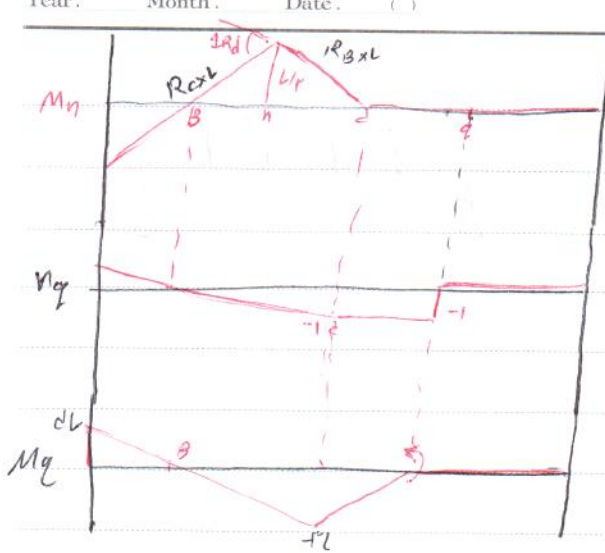 Year. Month. Date. ( )
1Rd
RB×L
Rc×L
L/4
Mn
B n c q
nq
-1 c -1
dL
Mq
B